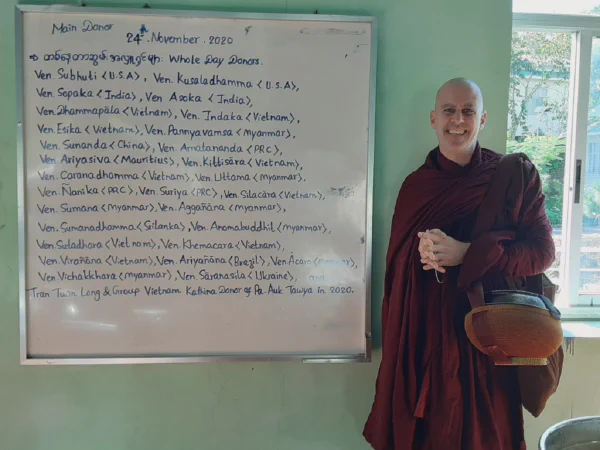 Main Donor
24. November. 2020
⇒ တစ်နေ့တာဆွမ်းအလှူရှင်များ: Whole Day Donors.
Ven. Subhuti <U.S.A>, Ven. Kusaladhamma <U.S.A>,
Ven. Sopaka <India>, Ven Asoka <India>,
Ven. Dhammapāla <Vietnam>, Ven. Indaka <Vietnam>,
Ven. Esika <Vietnam>, Ven. Pannyavamsa <Myanmar>,
Ven. Sunanda <China>, Ven. Amatananda <PRC>,
Ven. Ariyasiva <Mauritius>, Ven. Kittisāra <Vietnam>,
Ven. Caranadhamma <Vietnam>, Ven. Uttama <Myanmar>,
Ven. Ñanika <PRC>, Ven. Suriya <PRC>, Ven. Silacāra <Vietnam>,
Ven. Sumana <Myanmar>, Ven. Aggañāna <Myanmar>,
Ven. Sumanadhamma <Srilanka>, Ven. Anomabuddhi <Myanmar>,
Ven. Suladhara <Vietnam>, Ven. Khemacara <Vietnam>,
Ven. Virañāna <Vietnam>, Ven. Ariyañāna <Brazil>, Ven. Ācara
Ven. Vichakkhara <Myanmar>, Ven. Sāranasila <Ukraine>, and
Tran Tuan Long & Group Vietnam Kathina Donor of Pa-Auk Tawya in 2020.